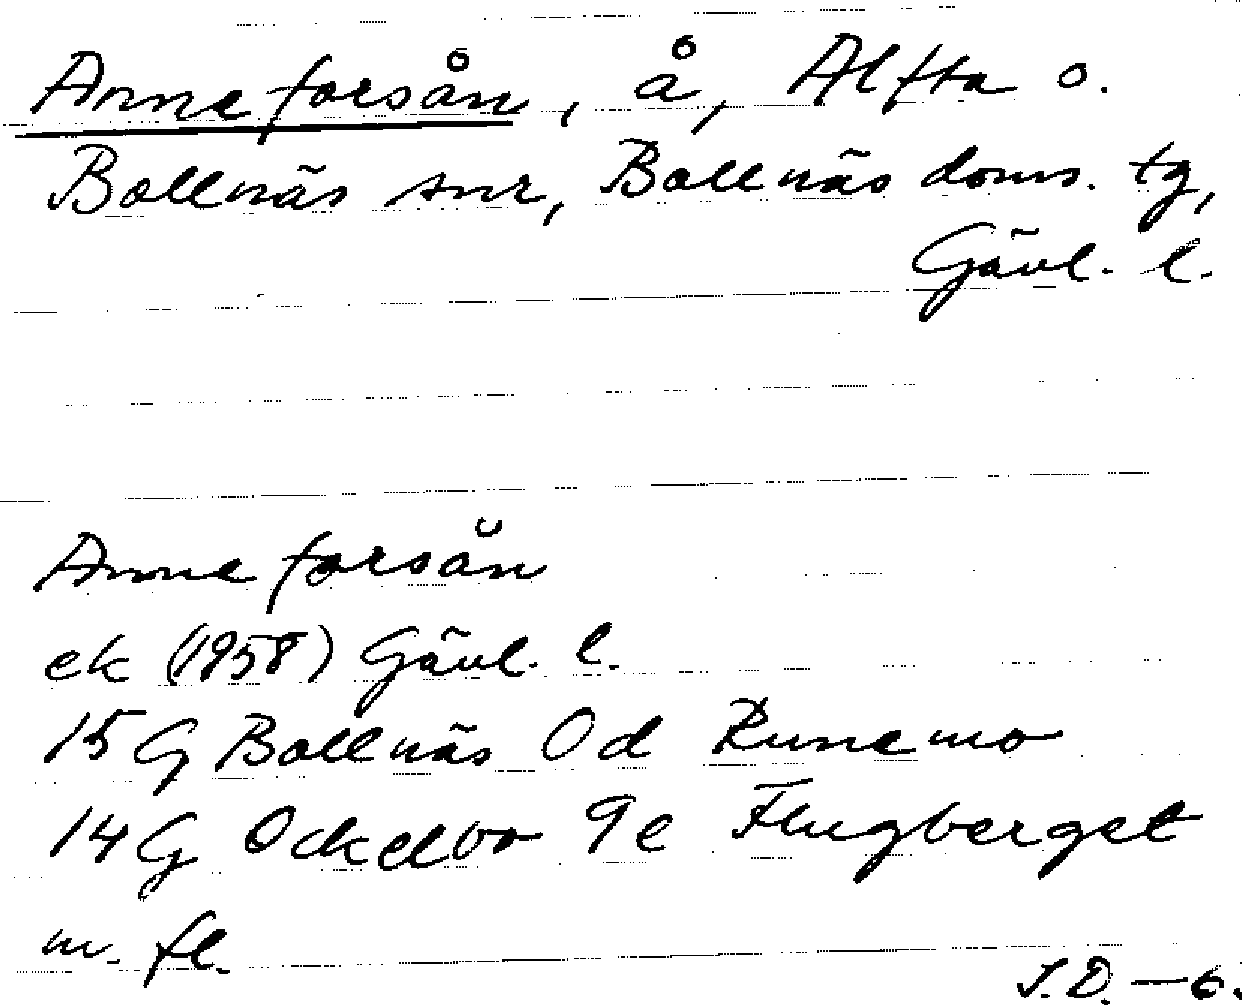 Anneforsån, å, Alfta o.
Bollnäs snr, Bollnäs doms. tg,
Gävl. l.
Anneforsån
ek (1958) Gävl. l.
15 G Bollnäs 0d Runemo
14 G Ockelbo 9e Flugberget
m. fl.
J.D. — 6.